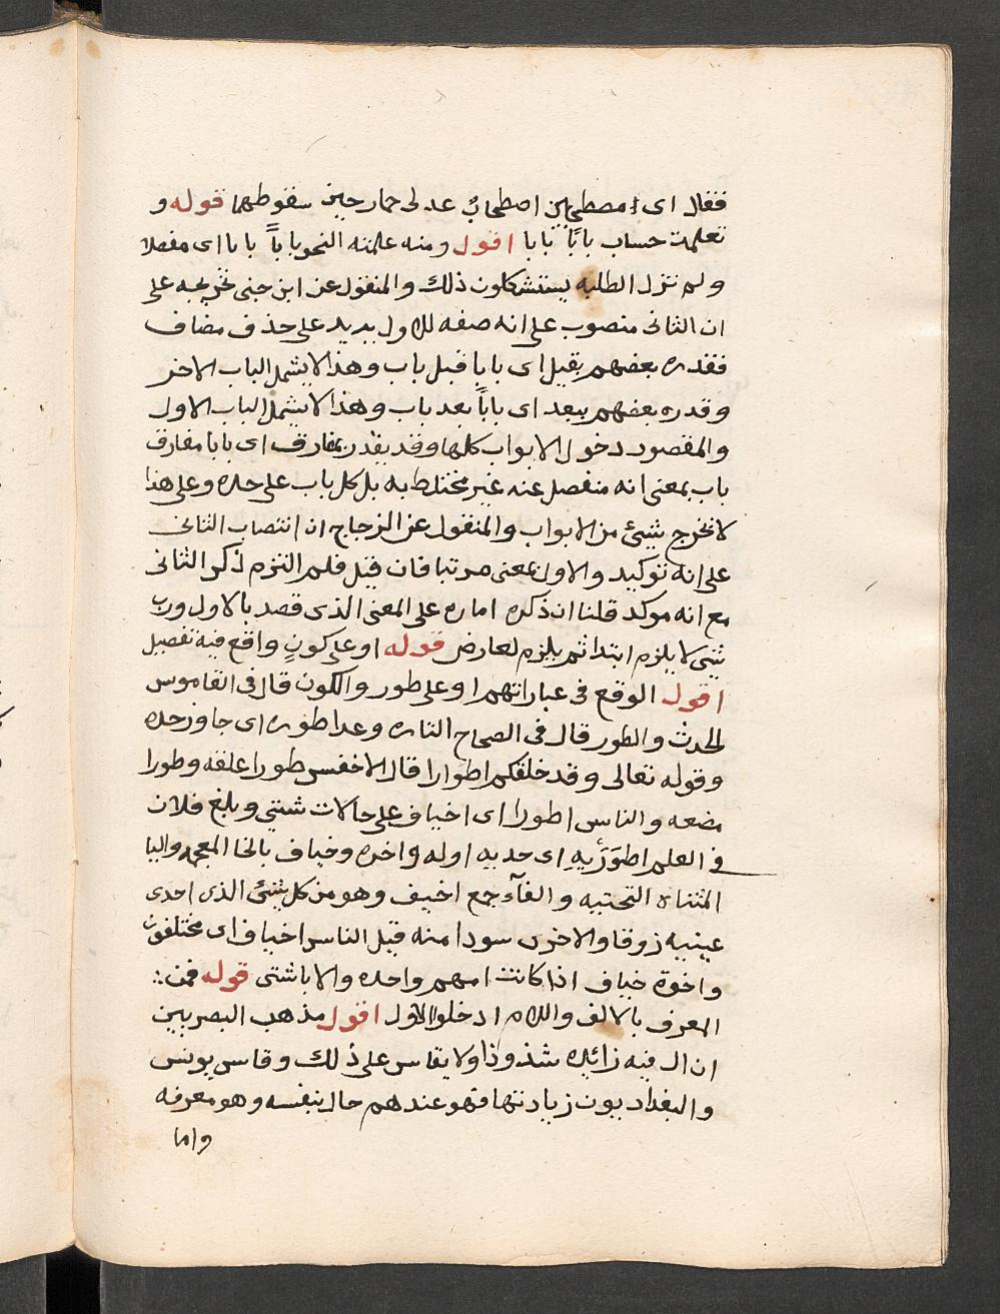 فقال اى مصطحبين اصطحاب عدلى حمار حين سقوطهما قوله و
تعلمت حساب بابًا بابا اقول ومنه علمته النحو باباً بابا اى مفصلا
ولم تزل الطلبه يستشكلون ذلك والمنقول عن ابن جنى تخريجه على
ان الثانى منصوب على انه صفه للاول يريد على حذف مضاف
فقدره بعضهم بقيل اى بابا قبل باب وهذا لا يشمل الباب الاخر
وقدره بعضهم ببعد اى باباً بعد باب وهذا لا يشمل الباب الاول
والمقصود دخول الابواب كلها وقد يقدر بمفارق اى بابا مفارق
باب بمعنى انه منفصل عنه غير مختلط به بل كل باب على حده وعلى هذا
لا تخرج شئ من الابواب والمنقول عن الزجاج ان انتصاب الثانى
على انه توكيد والاول بمعنى مرتبا فان قيل فلم التزم ذكر الثانى
مع انه موكد قلنا ان ذكره اماره على المعنى الذى قصد بالاول ورب
شى لا يلزم ابتدا ثم يلزم لعارض قوله او على كونٍ واقع فيه تفصيل
اقول الوقع فى عباراتهم او على طور والكون قال فى القاموس
الحدث والطور قال فى الصحاح التاره وعدا طوره اى جاوز حده
وقوله تعالى وقد خلقكم اطوارا قال الاخفس طورا علقه وطورا
مضعه والناس اطورا اى اخياف على حالات شتى وبلغ فلان
فى العلم اطوَرَيهِ اى حديه اوله واخره وخياف بالخا المعجمه واليا
المثناه التحتيه والفآء جمع اخيف وهو من كل شئ الذى احدى
عينيه زرقا والاخرى سودا منه قيل الناس اخياف اى مختلفون
واخوة خياف اذا كانت امهم واحده والابا شتى قوله فمن
المعرف بالالف واللام ادخلوا الاول اقول مذهب البصريين
ان ال فيه زائده شذوذا ولا يقاس على ذلك وقاس يونس
والبغداديون زيادتها فهو عندهم حال بنفسه وهو معرفه
واما